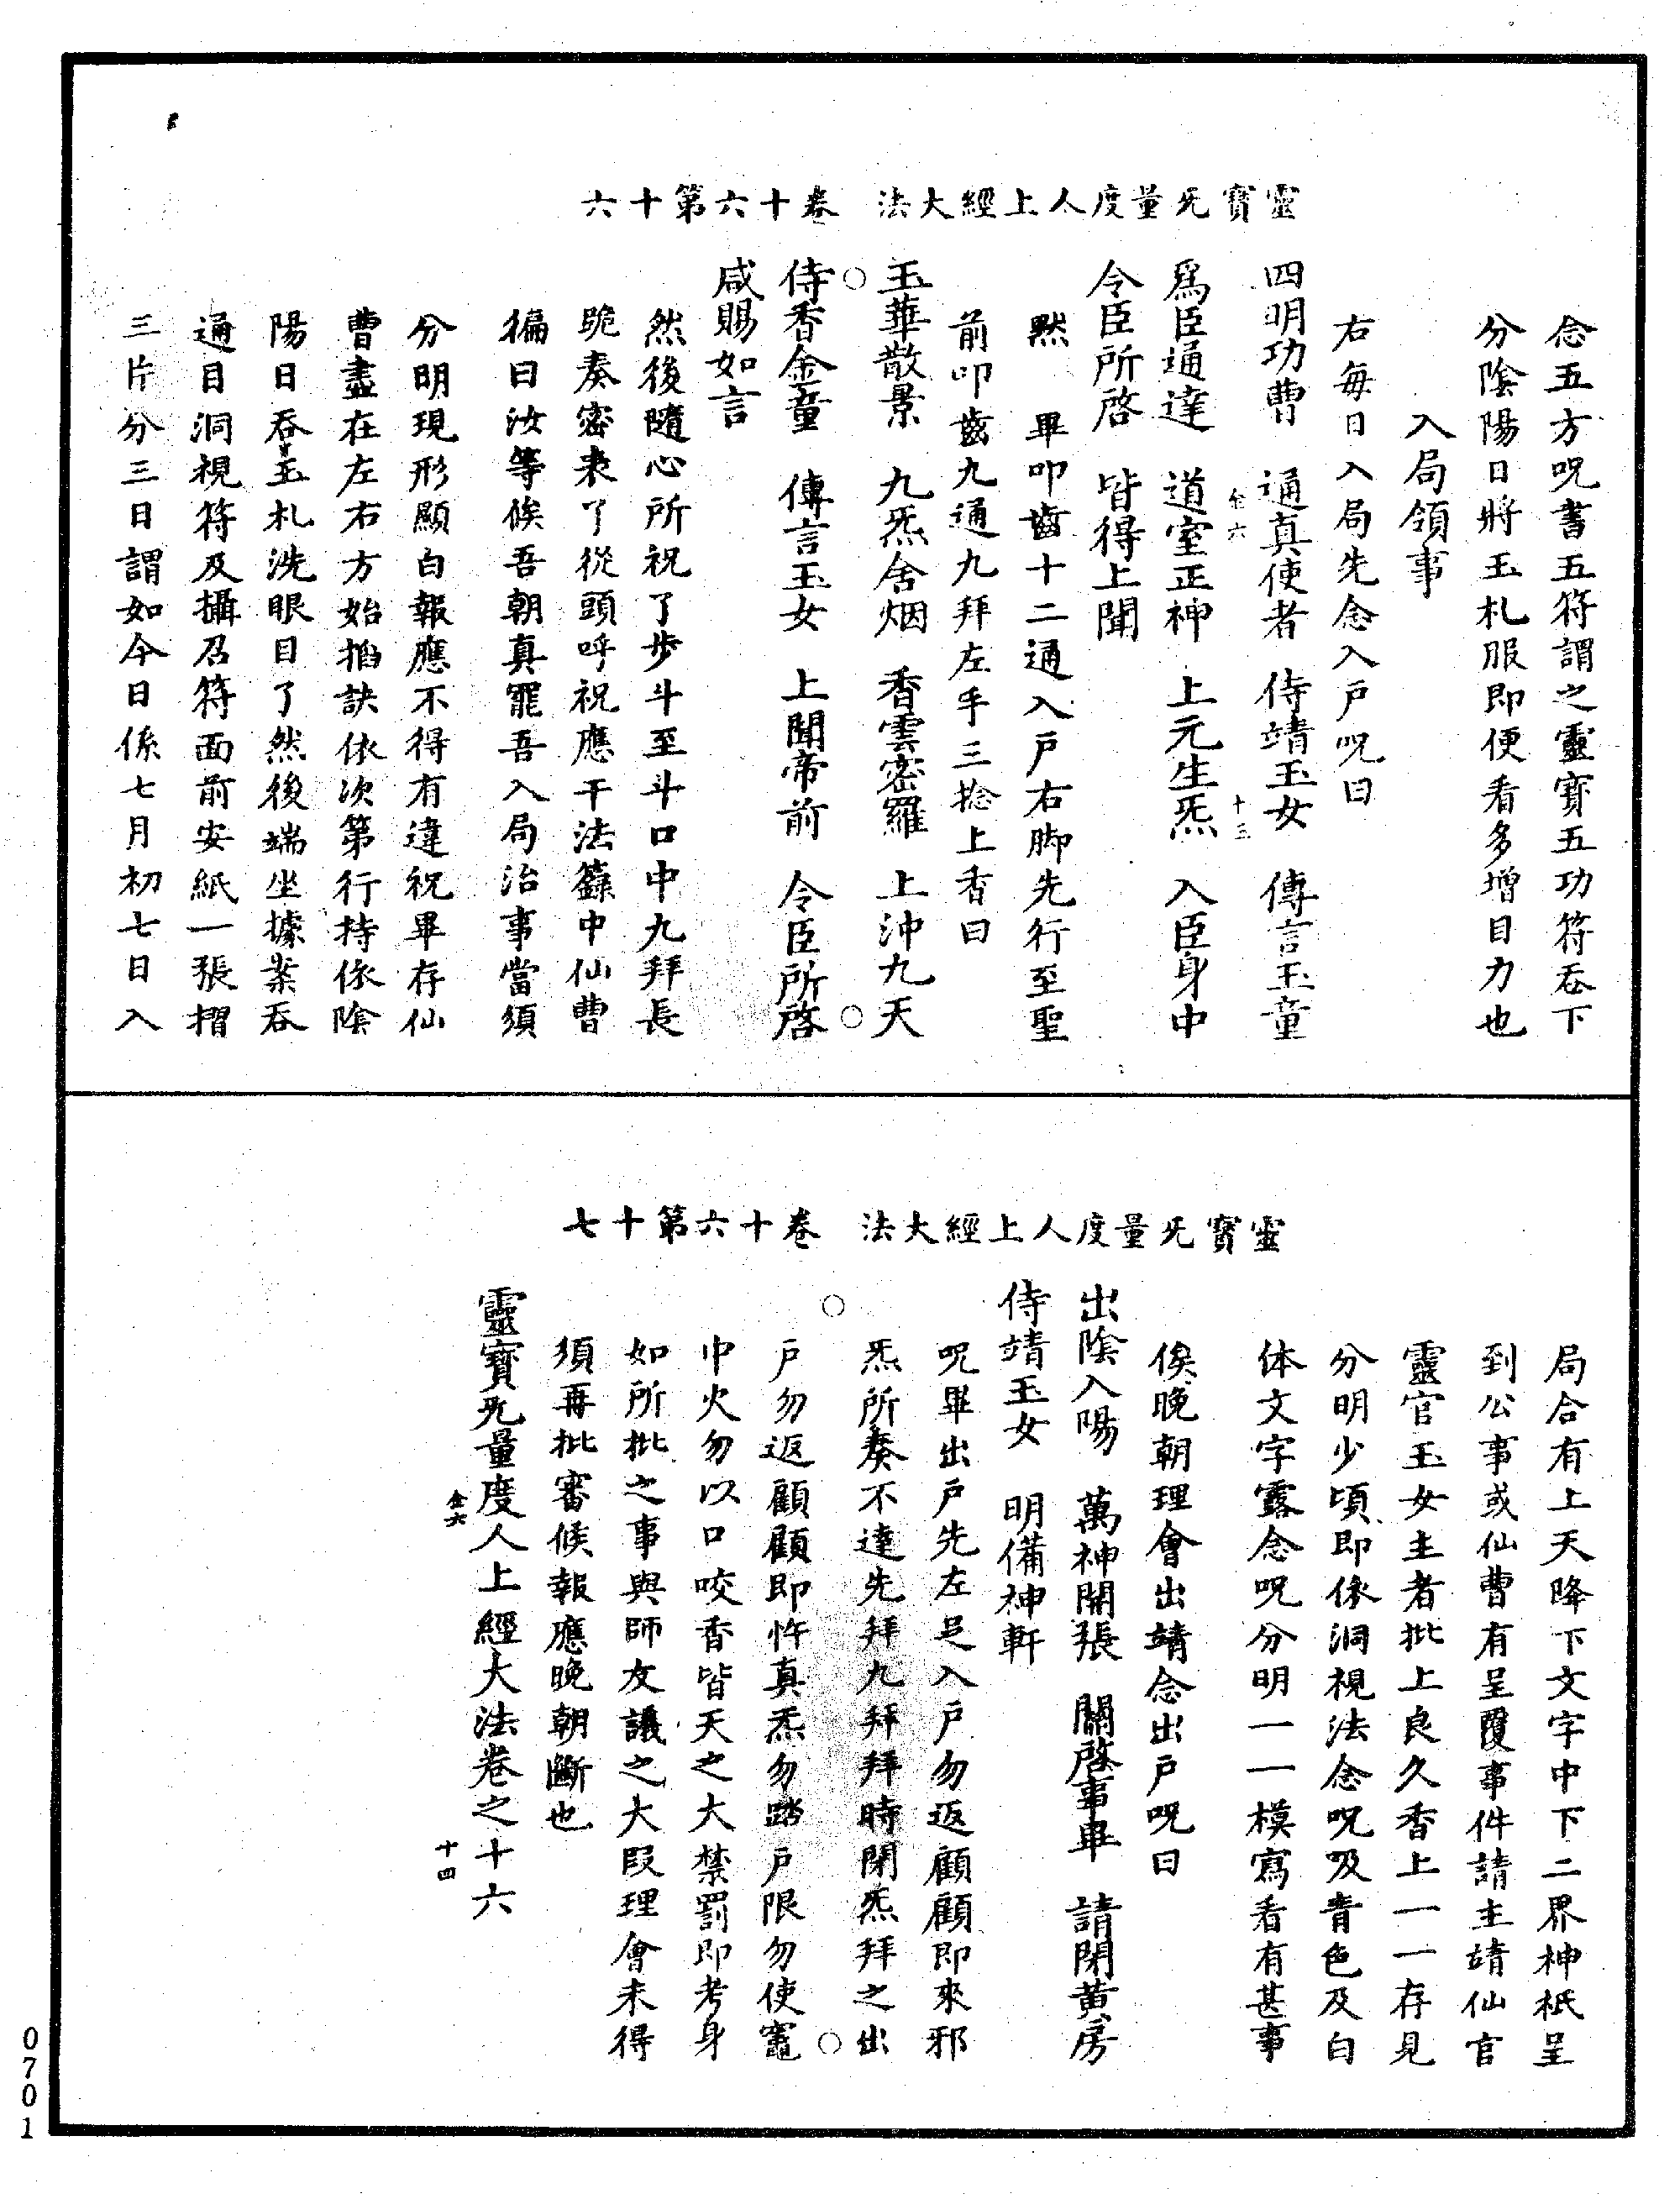 靈寶旡量度人上經大法　卷十六第十六
念五方呪書五符謂之靈寶五功符吞下
分陰陽日將玉札服即便看多增目力也
入局領事
右每日入局先念入戸呪曰
四明功曹　通真使者　侍靖玉女　傳言玉童
金六　十三
爲臣通達　道室正神　上元生炁　入臣身中
令臣所啓　皆得上聞
黙　畢叩齒十二通入戸右脚先行至聖
前叩齒九通九拜左手三捻上香曰
玉華散景　九炁含烟　香雲密羅　上沖九天
侍香金童　傳言玉女　上聞帝前　令臣所啓
咸賜如言
然後隨心所祝了步斗至斗口中九拜長
跪奏密表了從頭呼祝應干法籙中仙曹
徧曰汝等俟吾朝真罷吾入局治事當須
分明現形顯白報應不得有違祝畢存仙
曹盡在左右方始掐訣依次第行持依陰
陽日吞玉札洗眼目了然後端坐據案吞
通目洞視符及攝召符面前安紙一張摺
三片分三日謂如今日係七月初七日入
靈寶旡量度人上經大法　卷十六第十七
局合有上天降下文字中下二界神祇呈
到公事或仙曹有呈覆事件請主靖仙官
靈官玉女主者批上良久香上一一存見
分明少頃即依洞視法念呪吸青色及白
体文字露念呪分明一一模寫看有甚事
俟晚朝理會出靖念出戸呪曰
出陰入陽　萬神開張　關啓事畢　請閉黃房
侍靖玉女　明備神軒
呪畢出戸先左足入戸勿返顧顧即來邪
炁所奏不達先拜九拜拜時閉炁拜之出
戸勿返顧顧即忤真炁勿踏戸限勿使竈
中火勿以口咬香皆天之大禁罰即考身
如所批之事與師友議之大段理會未得
須再批審候報應晚朝斷也
靈寶旡量度人上經大法卷之十六
金六　十四
0701